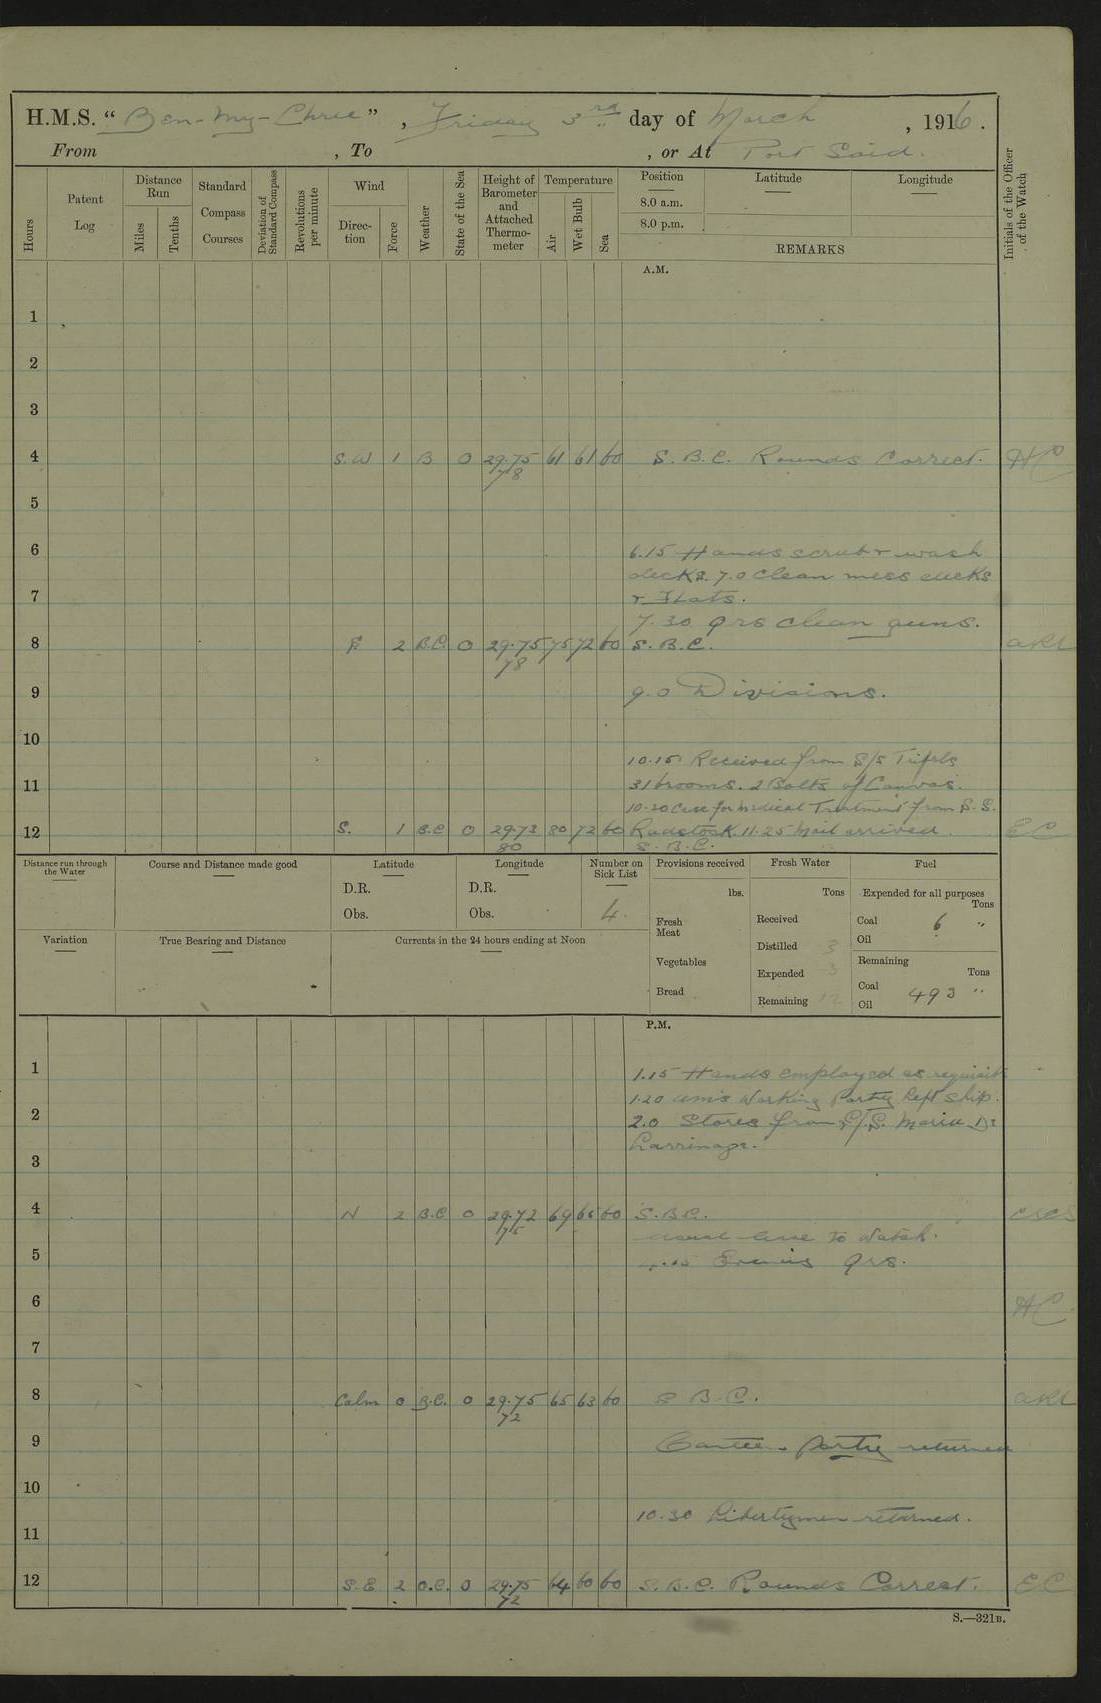 H.M.S. “Ben-My-Chree”, Friday 3rd day of March, 1916.
From , To , or At Port Said.
Hours
Patent Log
Distance Run
Miles
Tenths
Standard Compass Courses
Deviation of Standard Compass
Revolutions per minute
Wind
Direction
Force
Weather
State of the Sea
Height of Barometer and Attached Thermometer
Temperature
Air
Wet Bulb
Sea
Position
Latitude
Longitude
8.0 a.m.
8.0 p.m.
REMARKS
Initials of the Officer of the Watch
A.M.
1
2
3
4 S.W 1 B 0 29.75 61 61 60 S.B.C. Rounds Correct. HC
78
5
6 6.15 Hands scrub & wash
decks. 7.0 Clean mess decks
7 & Flats.
7.30 Qrs clean guns.
8 2 B.C. 0 29.75 75 72 60 S.B.C.
78
9 9.0 Divisions.
10
10.15 Received from S/S
11 31 brooms. 2 Bolts of Canvas.
10.30 Case for medical Treatment from S.S.
12 S. 1 B.C 0 29.73 80 72 60 Radstock. 11.25 Mail arrived. EC
80 S.B.C.
Distance run through the Water
Course and Distance made good
Latitude
D.R.
Obs.
Longitude
D.R.
Obs.
Number on Sick List
4.
Provisions received
lbs.
Fresh Meat
Vegetables
Bread
Fresh Water
Tons
Received
Distilled 3
Expended 3
Remaining
Fuel
Expended for all purposes
Tons
Coal 6 "
Oil
Remaining
Tons
Coal 493 "
Oil
Variation
True Bearing and Distance
Currents in the 24 hours ending at Noon
P.M.
1 1.15 Hands employed as requisite
1.20 Working Party left ship.
2 2.0 Stores from S/S. Maria De
Larrinaga.
3
4 N 2 B.C 0 29.72 69 60 S.B.C.
75
usual leave to Watch.
5 Evening Qrs.
6 HC
7
8 Calm 0 B.C. 0 29.75 65 63 60 S.B.C.
72
9 Canteen party returned
10
10.30 Libertymen returned.
11
12 S.E 2 O.C. 0 29.75 64 60 60 S.B.C. Rounds Correct. EC
72
S.—321B.